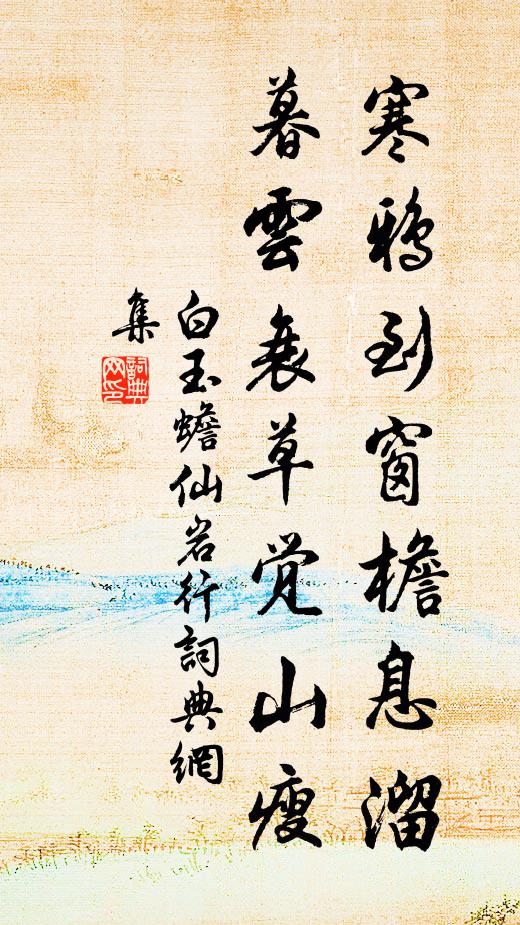 寒鴉到窗檐息溜
暮雲衰草覺山瘦
白玉蟾仙岩行詞典網
集
詞典網印